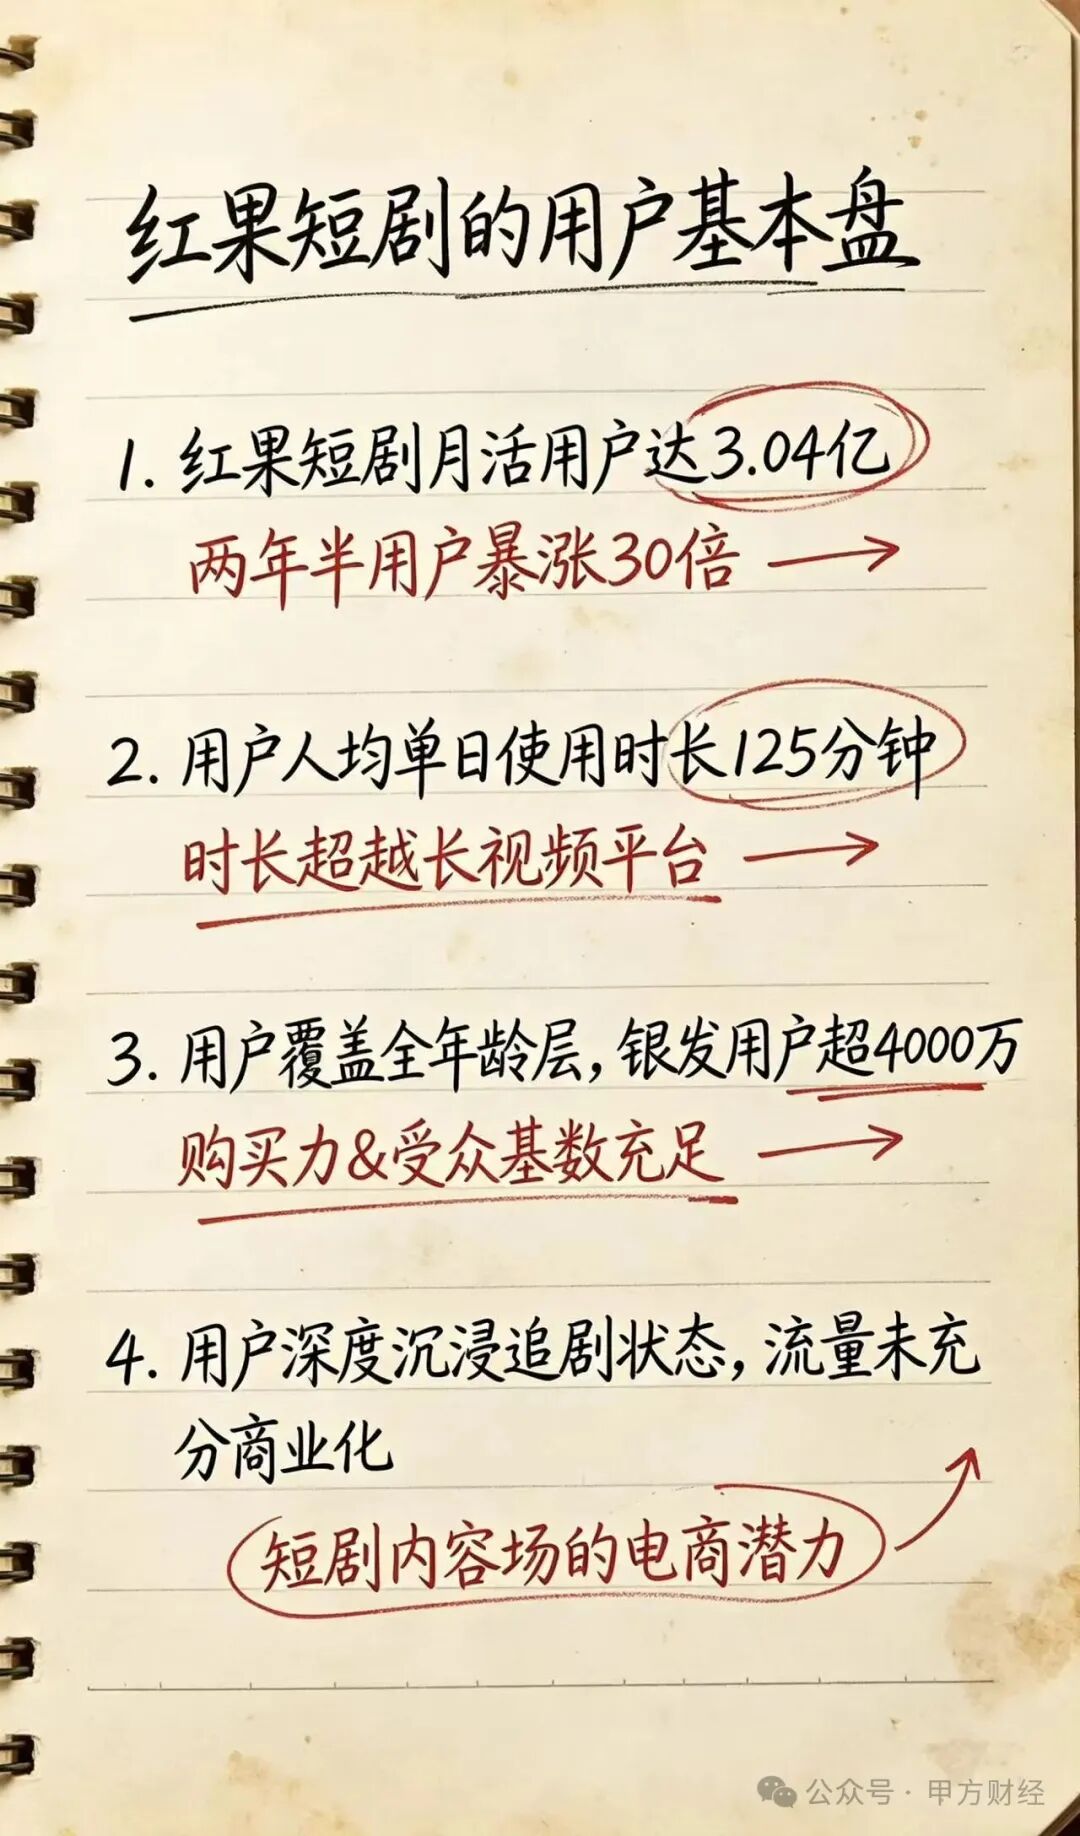 红果短剧的用户基本盘
1. 红果短剧月活用户达3.04亿
两年半用户暴涨30倍
2. 用户人均单日使用时长125分钟
时长超越长视频平台
3. 用户覆盖全年龄层，银发用户超4000万
购买力&受众基数充足
4. 用户深度沉浸追剧状态，流量未充
分商业化
短剧内容场的电商潜力
公众号·甲方财经